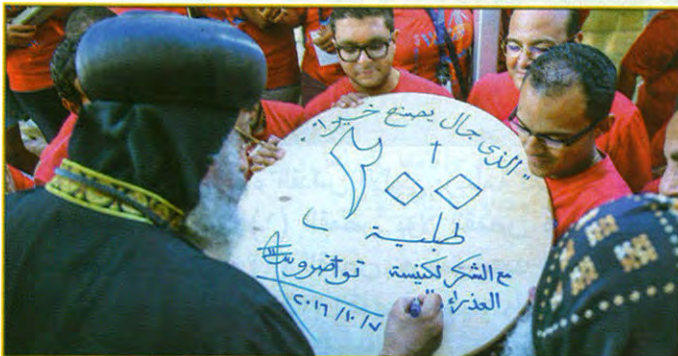 "الذى جال يصنع خيراً"
٢٠٠
طبلية
مع الشكر لكنيسة
العذراء
تواضروس
٢٠١٦/١٠/٧